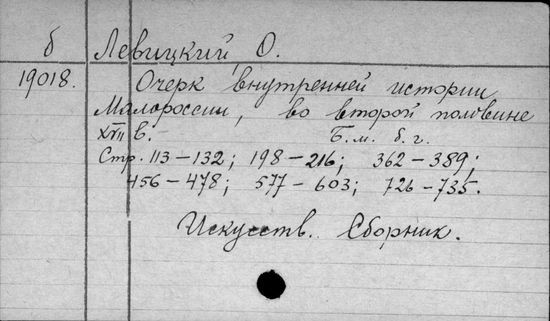 б Левицкий О.
19018. Очерк внутренней истории
Малороссии, во второй половине
XVII в. Б. м. б. г.
Стр. 113-132; 198-216; 362-389;
456-478; 577-603; 726-735.
Искусств. Сборник.